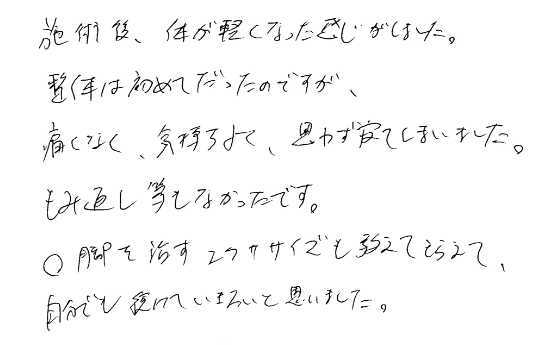 施術後、体が軽くなった感じがしました。
整体は初めてだったのですが、
痛くなく、気持ちよく、思わず寝てしまいました。
もみ直し等もなかったです。
○脚を治すエクササイズも教えてもらえて、
自分でも続けていきたいと思いました。